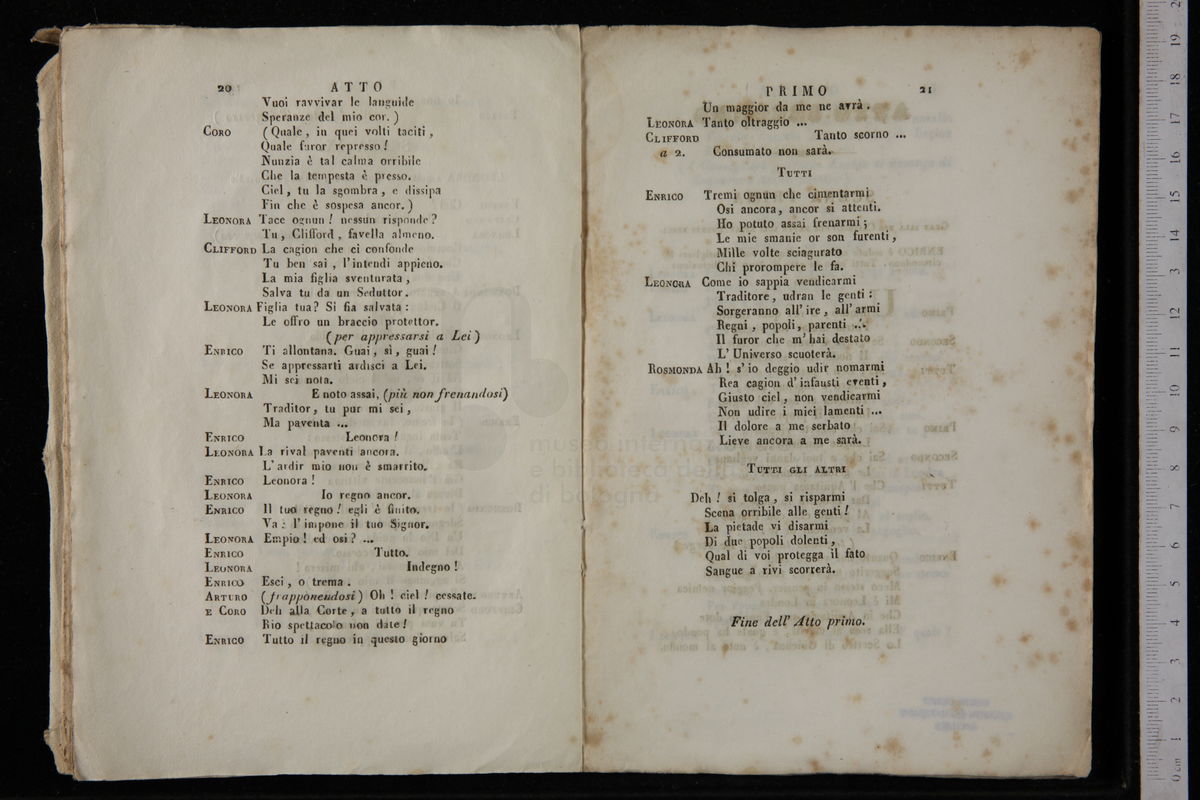 20 ATTO
Vuoi ravvivar le languide
Speranze del mio cor. )
CORO ( Quale, in quei volti taciti,
Quale furor represso!
Nunzia è tal calma orribile
Che la tempesta è presso.
Ciel, tu la sgombra, e dissipa
Fin che è sospesa ancor. )
LEONORA Tace ognun! nessun risponde?
Tu, Clifford, favella almeno.
CLIFFORD La cagion che ci confonde
Tu ben sai, l'intendi appieno.
La mia figlia sventurata,
Salva tu da un Seduttor.
LEONORA Figlia tua? Si fia salvata:
Le offro un braccio protettor.
(per appressarsi a Lei)
ENRICO Ti allontana. Guai, sì, guai!
Se appressarti ardisci a Lei.
Mi sei nota.
LEONORA E noto assai, (più non frenandosi)
Traditor, tu pur mi sei,
Ma paventa ...
ENRICO Leonora!
LEONORA La rival paventi ancora.
L'ardir mio non è smarrito.
ENRICO Leonora!
LEONORA Io regno ancor.
ENRICO Il tuo regno! egli è finito.
Va: l'impone il tuo Signor.
LEONORA Empio! ed osi? ...
ENRICO Tutto.
LEONORA Indegno!
ENRICO Esci, o trema.
ARTURO (frapponendosi) Oh! ciel! cessate.
E CORO Deh alla Corte, a tutto il regno
Rio spettacolo non date!
ENRICO Tutto il regno in questo giorno
PRIMO 21
Un maggior da me ne avrà.
LEONORA Tanto oltraggio ...
CLIFFORD Tanto scorno ...
a 2. Consumato non sarà.
TUTTI
ENRICO Tremi ognun che cimentarmi
Osi ancora, ancor si attenti.
Ho potuto assai frenarmi;
Le mie smanie or son furenti,
Mille volte sciagurato
Chi prorompere le fa.
LEONORA Come io sappia vendicarmi
Traditore, udran le genti:
Sorgeranno all'ire, all'armi
Regni, popoli, parenti ...
Il furor che m'hai destato
L'Universo scuoterà.
ROSMONDA Ah! s'io deggio udir nomarmi
Rea cagion d'infausti eventi,
Giusto ciel, non vendicarmi
Non udire i miei lamenti ...
Il dolore a me serbato
Lieve ancora a me sarà.
TUTTI GLI ALTRI
Deh! si tolga, si risparmi
Scena orribile alle genti!
La pietade vi disarmi
Di due popoli dolenti,
Qual di voi protegga il fato
Sangue a rivi scorrerà.
Fine dell'Atto primo.